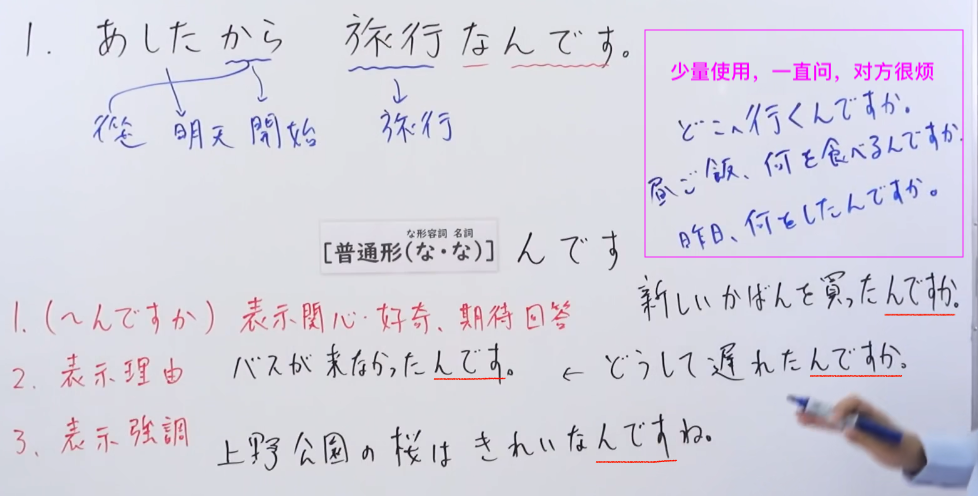 1. あしたから 旅行なんです。
從 明天 開始 旅行
少量使用，一直问，对方很烦
どこへ行くんですか。
昼ご飯、何を食べるんですか.
昨日、何をしたんですか。
な形容詞 名詞
[普通形(な・な)] んです
新しいかばんを買ったんですか。
1. (〜んですか) 表示関心・好奇、期待回答
2. 表示理由 バスが来なかったんです。 ← どうして遅れたんですか。
3. 表示強調 上野公園の桜は きれいなんですね。